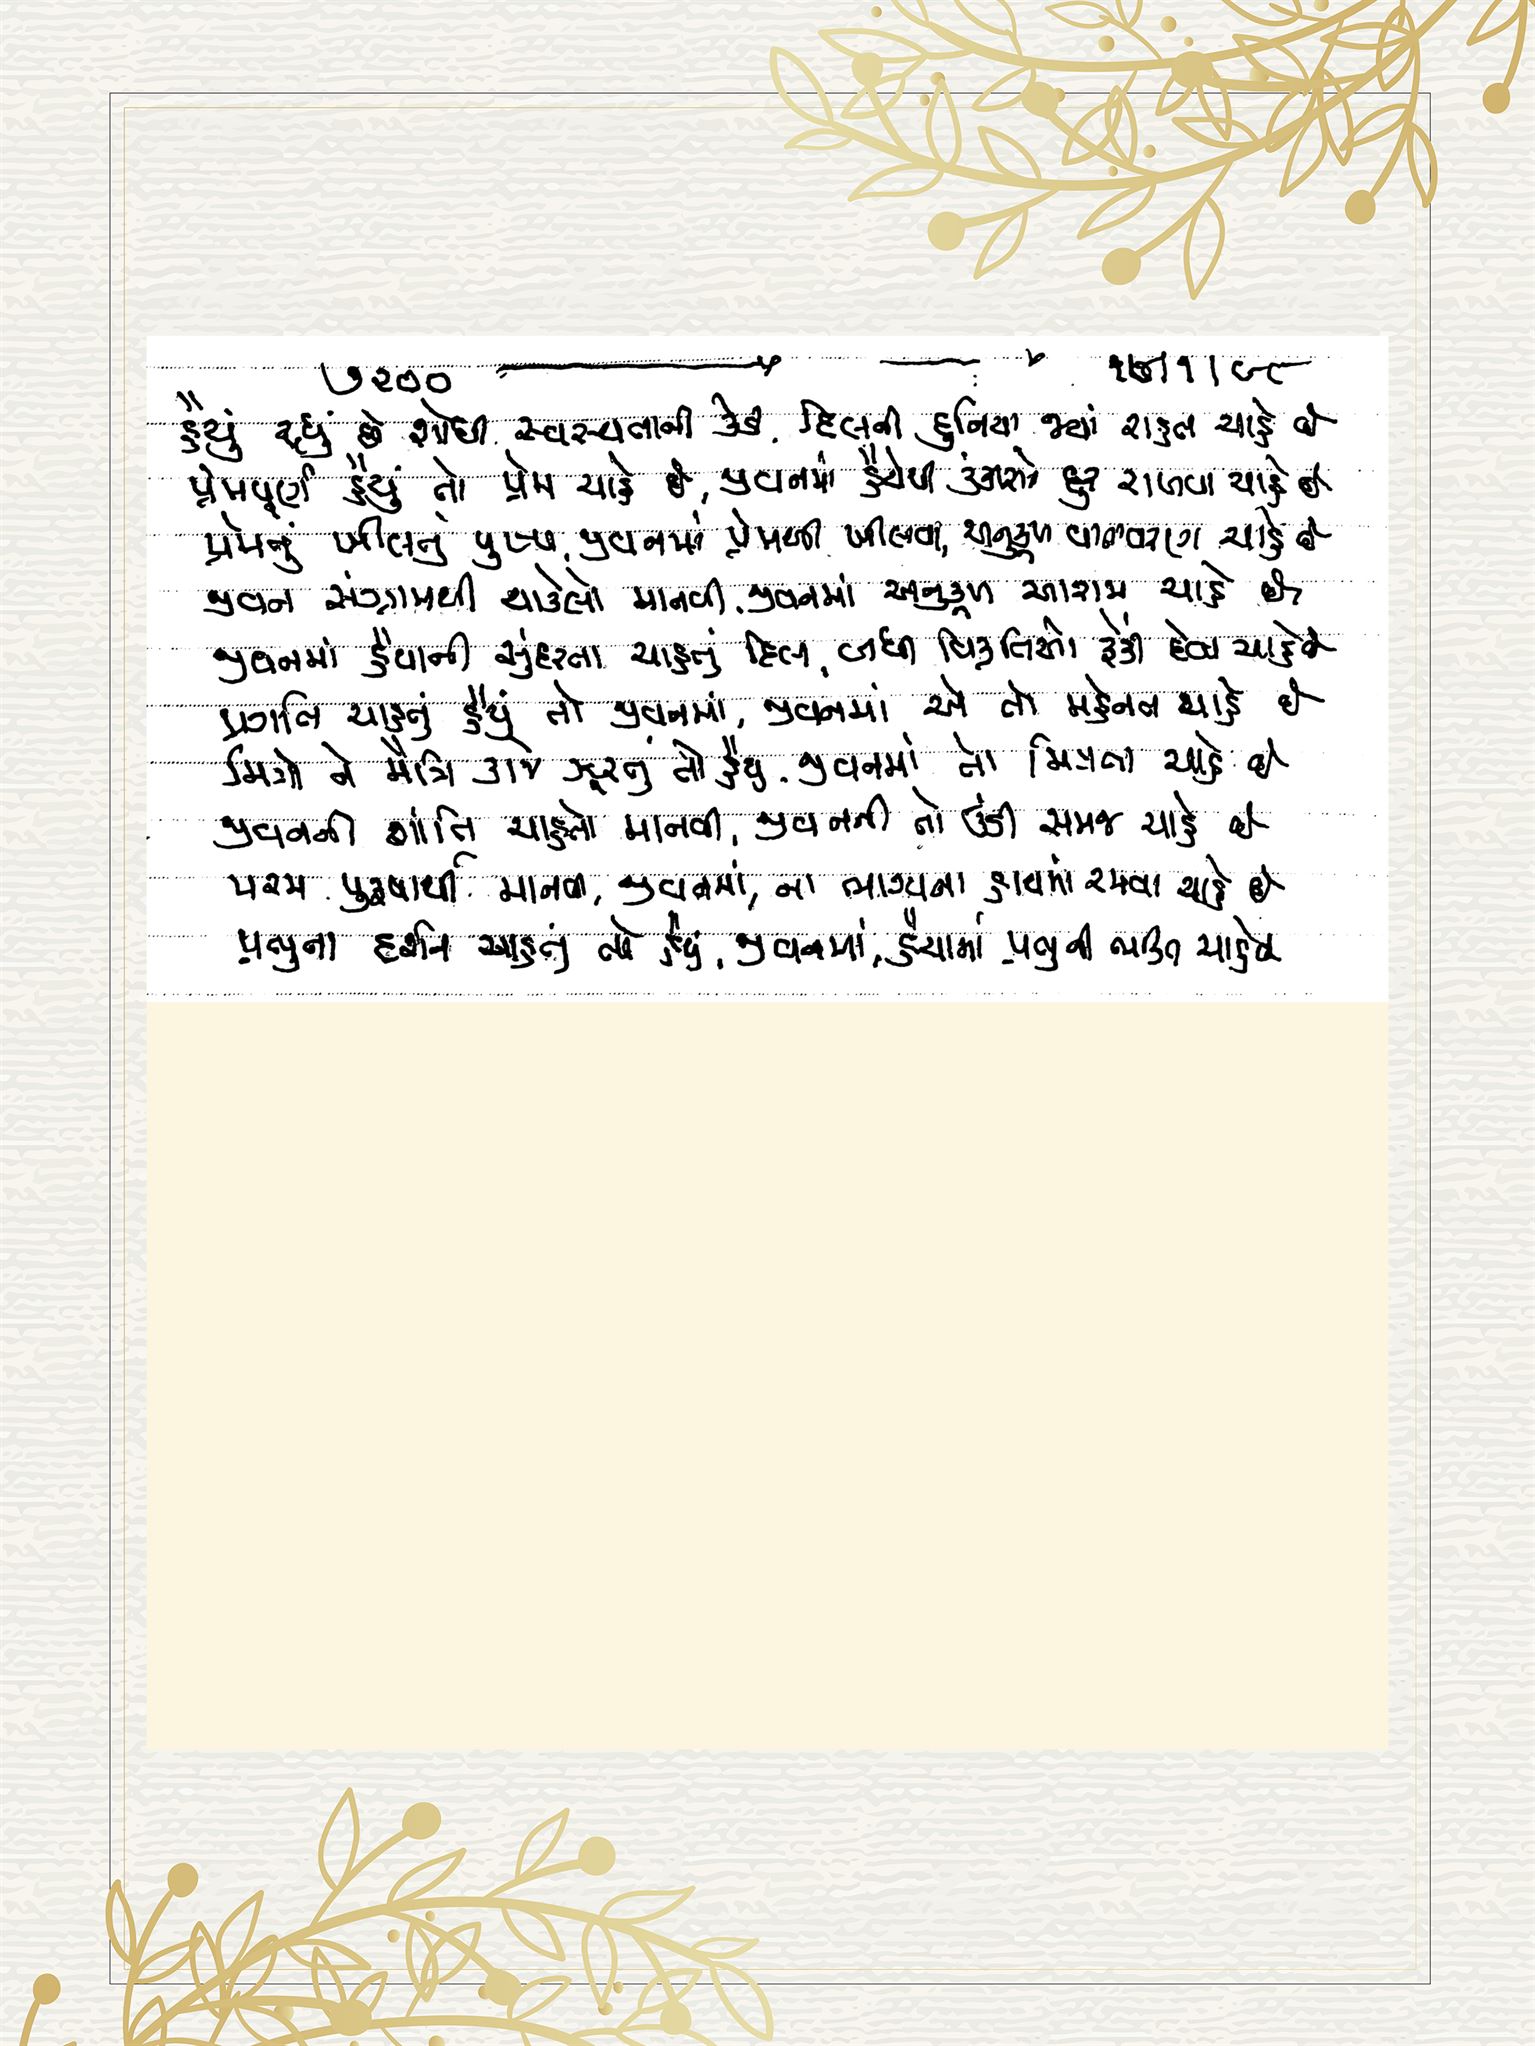 ૭૨૦૦ ૧૭/૧/૯૮
હૈયું રહ્યું છે શોધી સ્વસ્થતાની કેડી, દિલની દુનિયા જ્યાં રાહત ચાહે છે
પ્રેમપૂર્ણ હૈયું તો પ્રેમ ચાહે છે, જીવનમાં હૈયેથી દૂર રાખવા ચાહે છે
પ્રેમનું ખીલતું પુષ્પ, જીવનમાં પ્રેમથી ખીલવા, અનુકૂળ વાતાવરણ ચાહે છે
જીવન સંગ્રામથી થાકેલો માનવી, જીવનમાં અનુકૂળ આરામ ચાહે છે
જીવનમાં હૈયાની સુંદરતા ચાહતું દિલ, બધી વિકૃતિઓ ફેંકી દેવા ચાહે છે
પ્રગતિ ચાહતું હૈયું તો જીવનમાં, જીવનમાં એ તો મહેનત ચાહે છે
મિત્રો ને મૈત્રિ કાજ ઝૂરતું તો હૈયું, જીવનમાં તો મિત્રતા ચાહે છે
જીવનની શાંતિ ચાહતો માનવી, જીવનની તો ઉંડી સમજ ચાહે છે
પરમ પુરૂષાર્થી માનવી, જીવનમાં, ના ભાગ્યના હાથમાં રમવા ચાહે છે
પ્રભુના દર્શન ચાહતું તો હૈયું, જીવનમાં, હૈયામાં પ્રભુની ભક્તિ ચાહે છે